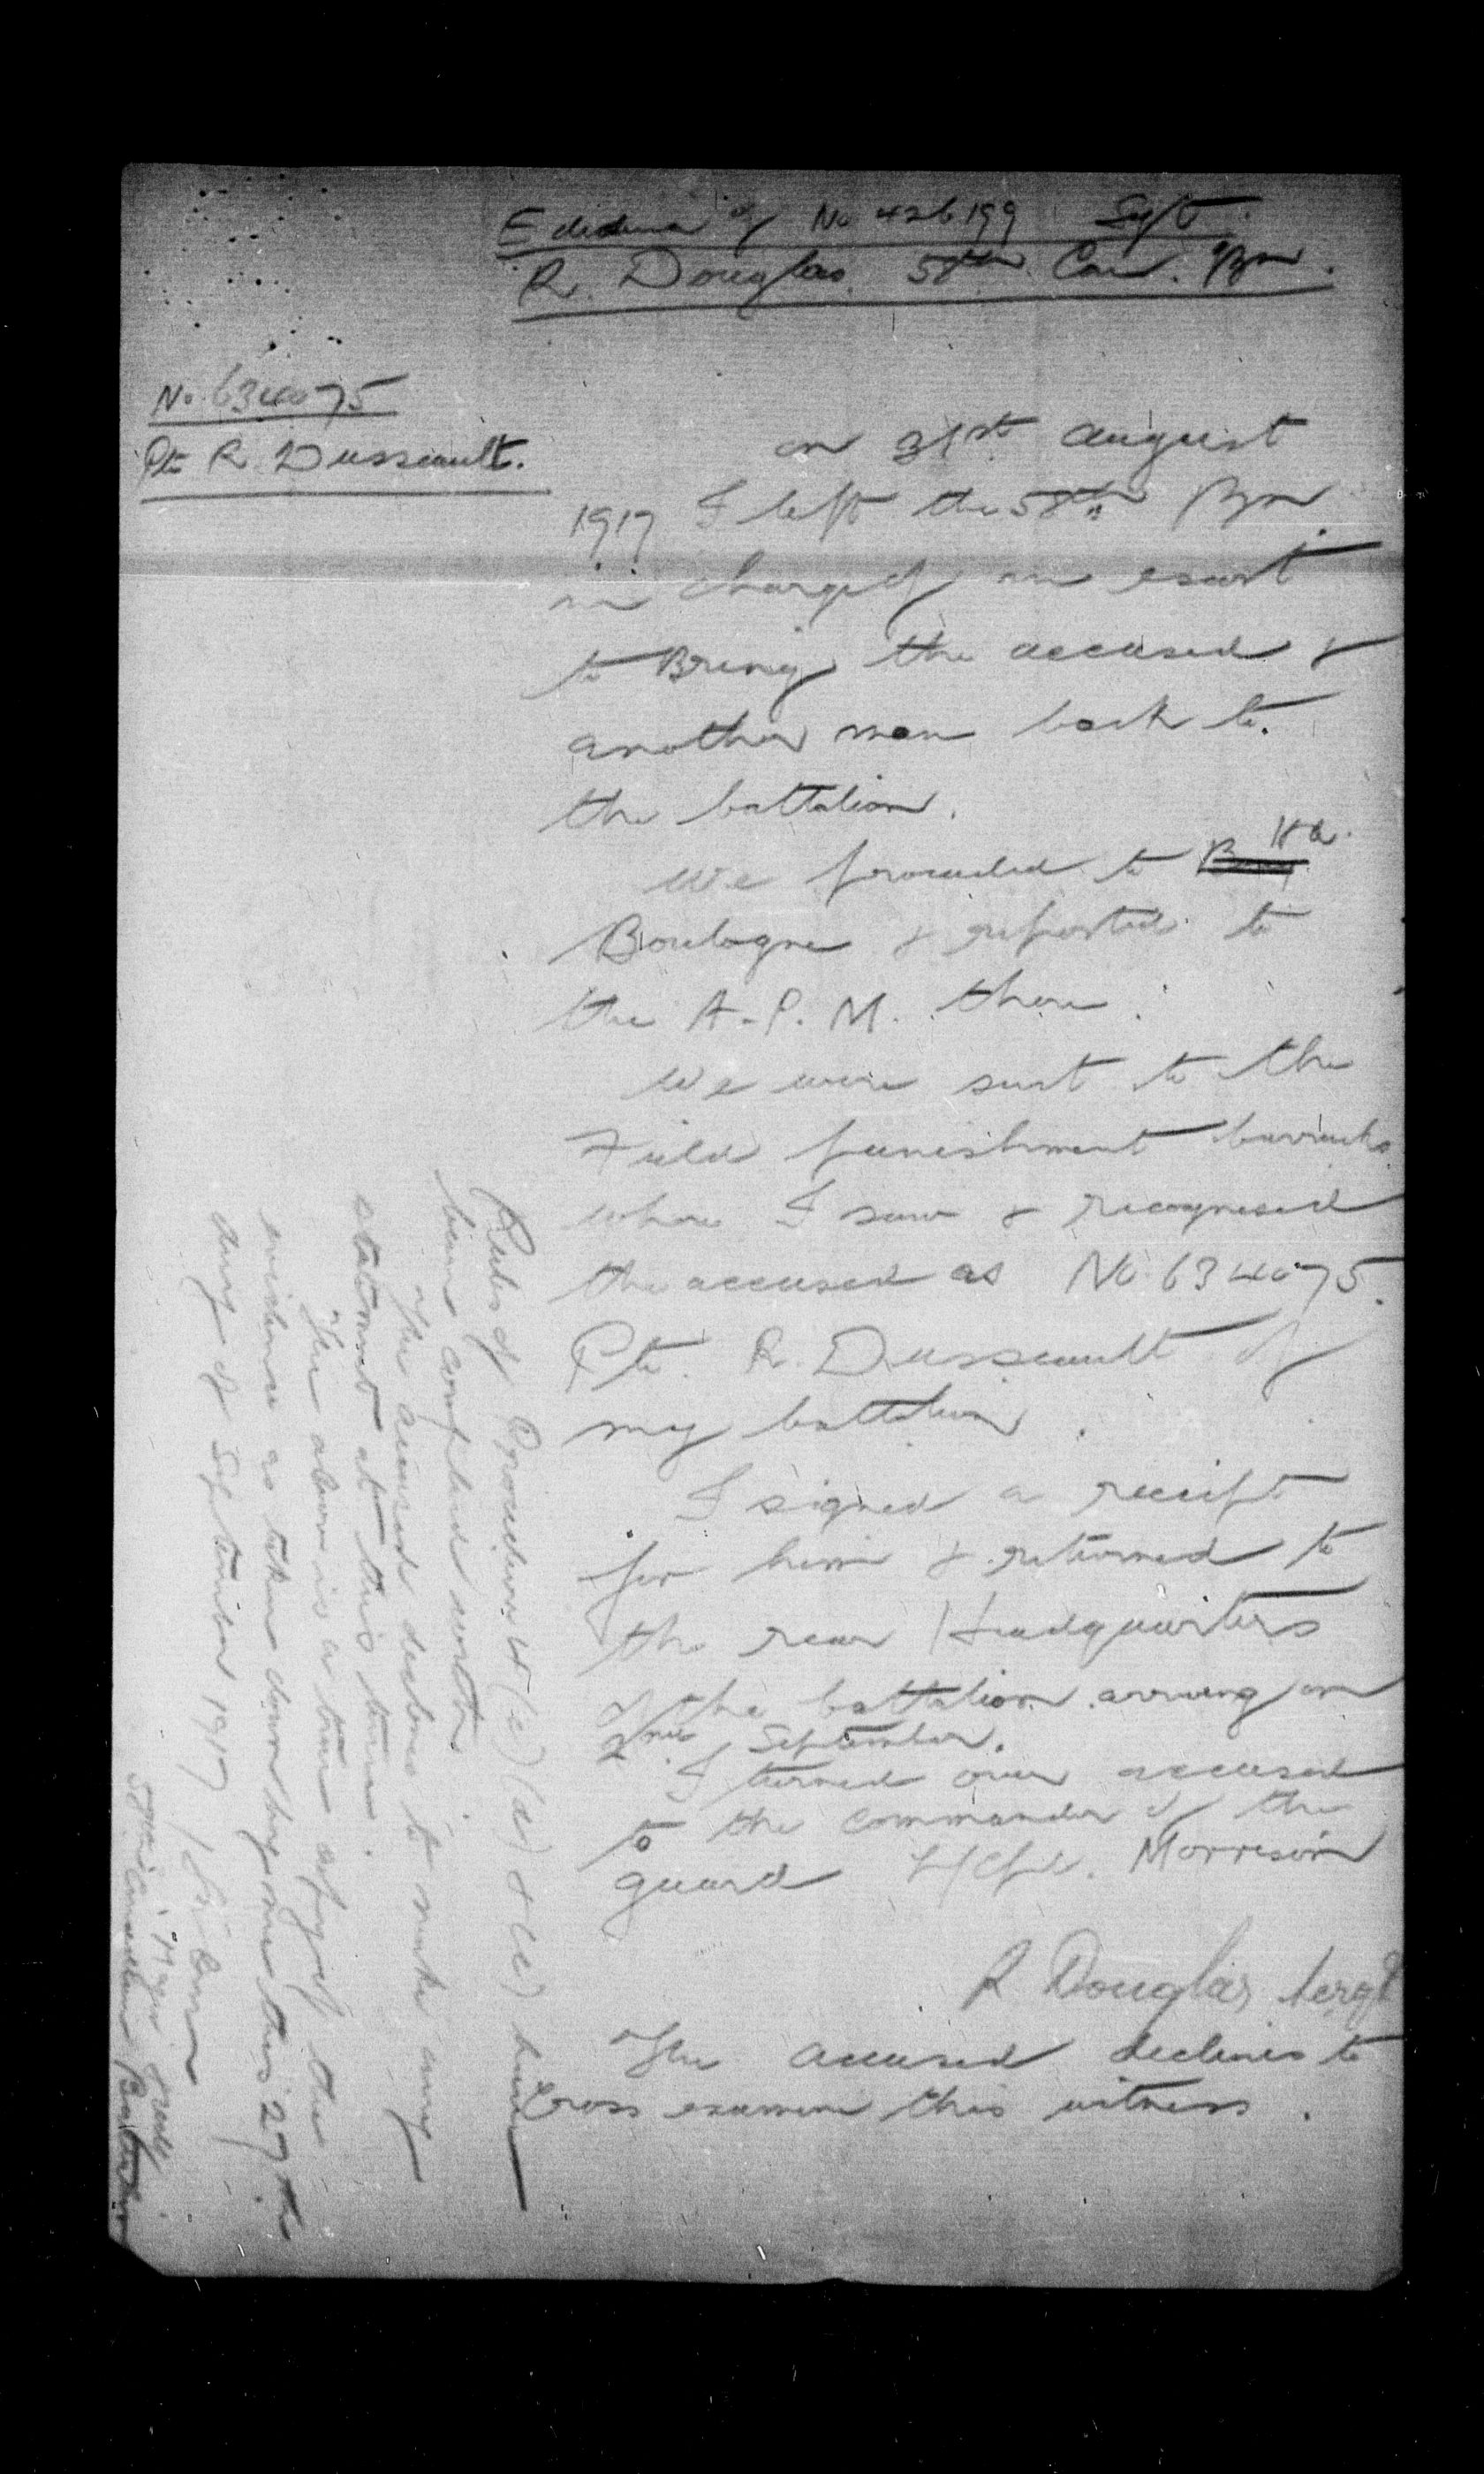 Evidence of No 426199 Sgt.
R. Douglas. 58th Can. Bn.
No. 634075
Pte R. Dusseault.
on 31st August
1917 I left the 58th Bn.
in charge of an escort
to Bring the accused &
another man back to
the battalion.
We proceeded to
Boulogne & reported to
the A.P.M. there.
We were sent to the
Field punishment barracks
where I saw & recognised
the accused as No. 634075.
Pte. R. Dusseault of
my battalion.
I signed a receipt
for him & returned to
the rear Headquarters
of the battalion arriving on
2nd September.
I turned over accused
to the commander of the
guard L/Cpl. Morrison
R Douglas Sergt
The accused declines to
cross examine this witness.
Rules of Procedure 4 (c) (d) & (e) have
been complied with.
The accused declines to make any
statement at this time.
The above is a true of the
evidence as taken down by me this 27th
day of September 1917
Major
58th Canadian Battalion